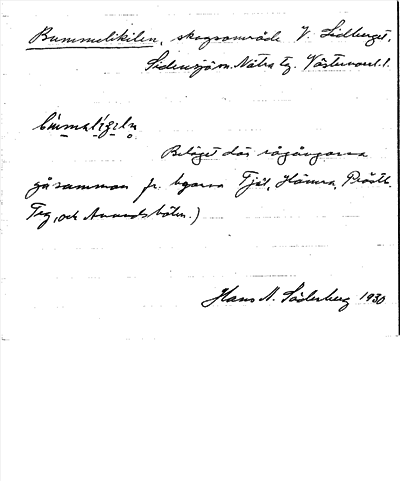 Bummelikilen, skogsområde V. Sidberget,
Sidensjö sn. Nätra tg. Västernorrl. l.
Beläget där rågångarna
gå samman fr. byarna Tjäl, Hömra, Präst
Teg, och Anundsböle.)
Hans N. Söderberg 1930